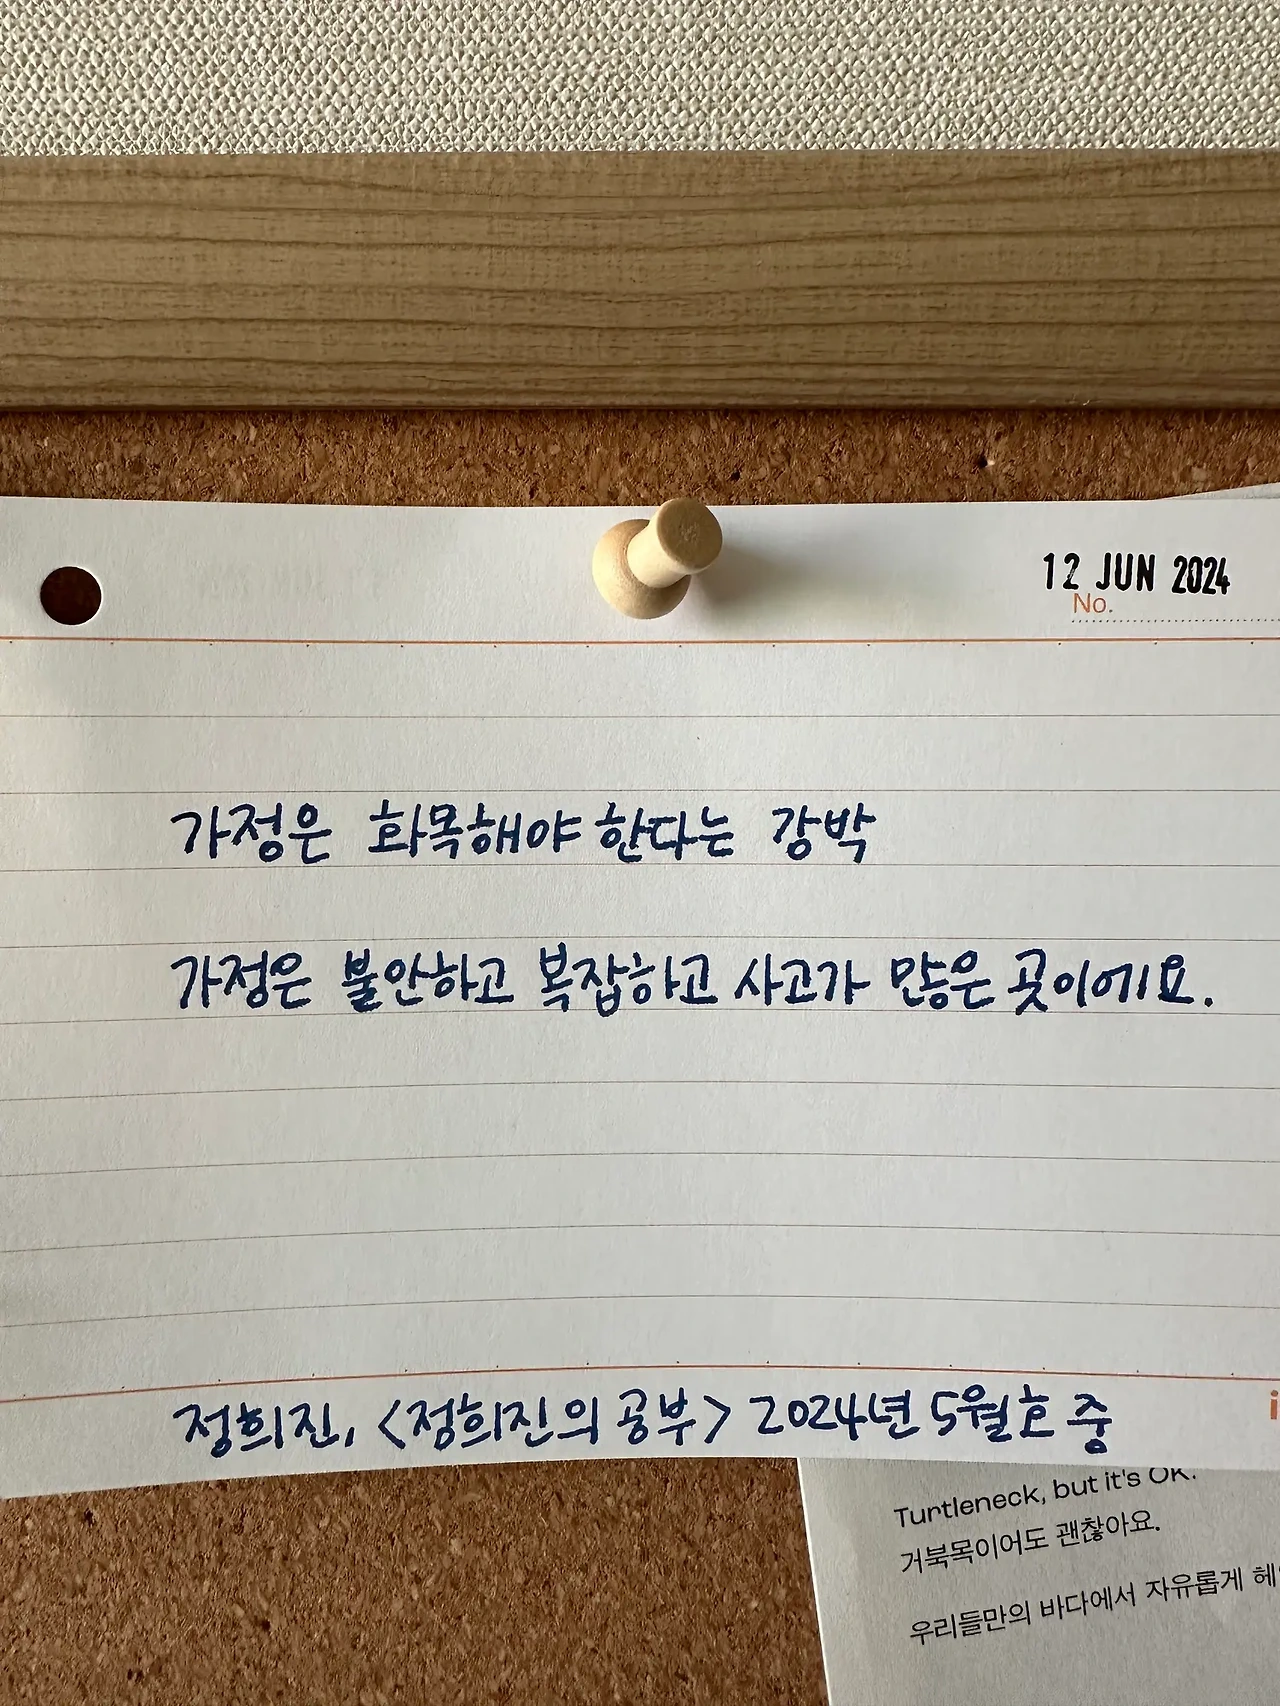 12 JUN 2024
No.
가정은 화목해야 한다는 강박
가정은 불안하고 복잡하고 사고가 많은 곳이에요.
정희진, <정희진의 공부> 2024년 5월호 중
Turtleneck, but it's OK.
거북목이어도 괜찮아요.
우리들만의 바다에서 자유롭게